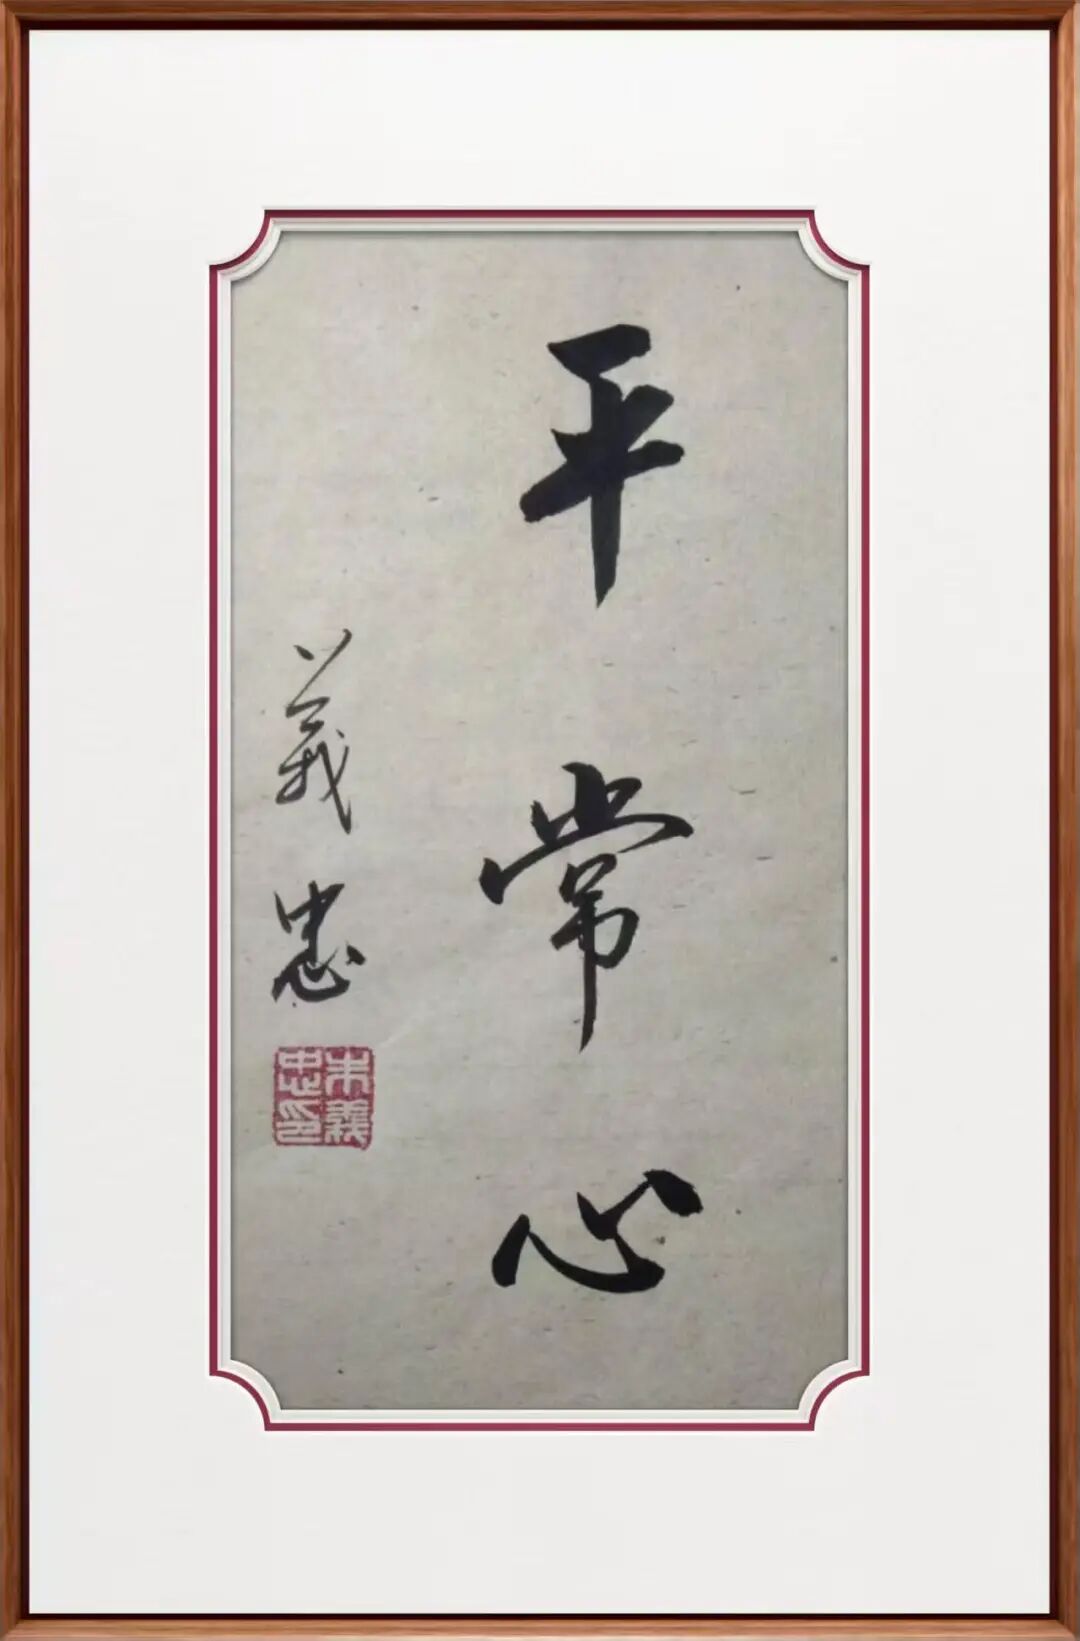 平常心
義忠
朱義忠印